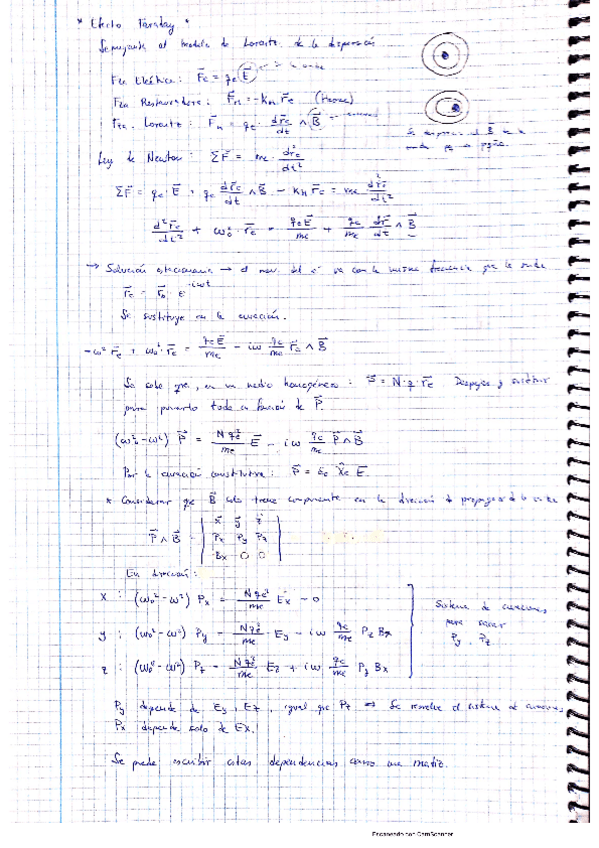 * Efecto Faraday *
Semejante al modelo de Lorentz de la dispersión
Fza Eléctrica: F⃗e = qe E⃗ la onda
Fza Restauradora: F⃗n = -kn r⃗e (Hooke)
Fza. Lorentz: F⃗m = qe · dr⃗e/dt ∧ B⃗
B⃗
Ley de Newton: ΣF⃗ = me · d²r⃗e/dt²
ΣF⃗ = qe · E⃗ + qe dr⃗e/dt ∧ B⃗ - kn r⃗e = me d²r⃗e/dt²
d²r⃗e/dt² + ω₀² · r⃗e = qe E⃗/me + qe/me dr⃗/dt ∧ B⃗
→ Solución estacionaria → el mov. del e⁻ va con la misma frecuencia que la onda
r⃗e = r⃗₀ · e^-iωt
Se sustituye en la ecuación.
-ω² r⃗e + ω₀² · r⃗e = qe E⃗/me - iω qe/me r⃗e ∧ B⃗
Se sabe que, en un medio homogéneo: P⃗ = N · q · r⃗e Despejas y sustituir
para ponerlo todo en función de P⃗.
(ω₀² - ω²) P⃗ = N qe²/me E⃗ - iω qe/me P⃗ ∧ B⃗
Por la ecuación constitutiva: P⃗ = ε₀ χ̂e E⃗
* Considerar que B⃗ solo tiene componente en la dirección de propagación de la onda
P⃗ ∧ B⃗ = | x⃗ y⃗ z⃗ |
| Px Py Pz |
| Bx 0 0 |
En dirección:
x : (ω₀² - ω²) Px = N qe²/me Ex - 0
y : (ω₀² - ω²) Py = N qe²/me Ey - iω qe/me Pz Bx
z : (ω₀² - ω²) Pz = N qe²/me Ez + iω qe/me Py Bx
Sistema de ecuaciones
para sacar
Py, Pz
Py depende de Ey, Ez, igual que Pz ⇒ Se resuelve el sistema de ecuaciones
Px depende solo de Ex.
Se puede escribir estas dependencias como una matriz.
Escaneado con CamScanner